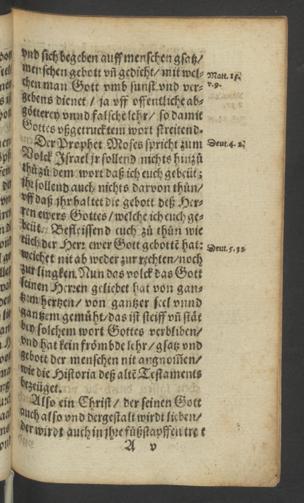 vnd sich begeben auff menschen gsatz/
menschen gebott vñ gedicht/ mit wel-
chen man Gott vmb sunst vnd ver-
gebens dienet / ja vff offentliche ab-
götterey vnnd falsche lehr/ so damit
Gottes vßgetrucktem wort streitend.
Der Prophet Moses spricht zum
Volck Jsrael jr sollend nichts hinzů
thůzů dem wort daß ich euch gebeüt:
jhr sollend auch nichts darvon thůn/
vff daß jhr haltet die gebott deß Her-
ren ewers Gottes/ welche ich euch ge-
beüt. Befleissend euch zů thůn wie
eüch der Herz ewer Gott gebottē hat:
weichet nit ab weder zur rechten/noch
zur lingken. Nun das volck das Gott
seinen Herren geliebet hat von gan-
tzem hertzen/ von gantzer seel vnnd
gantzem gemüht/ das ist steiff vñ stät
bey solchem wort Gottes verbliben/
vnd hat kein frömbde lehr/ gsatz vnd
gebott der menschen nit angnom̃en/
wie die Historia deß altē Testaments
bezeüget.
Also ein Christ/ der seinen Gott
auch also vnd dergestalt wirdt lieben/
der wirdt auch in jhre fůßstapffen tret
A v
Matt. 15.
v. 9.
Deut. 4. 2.
Deut. 5. 32